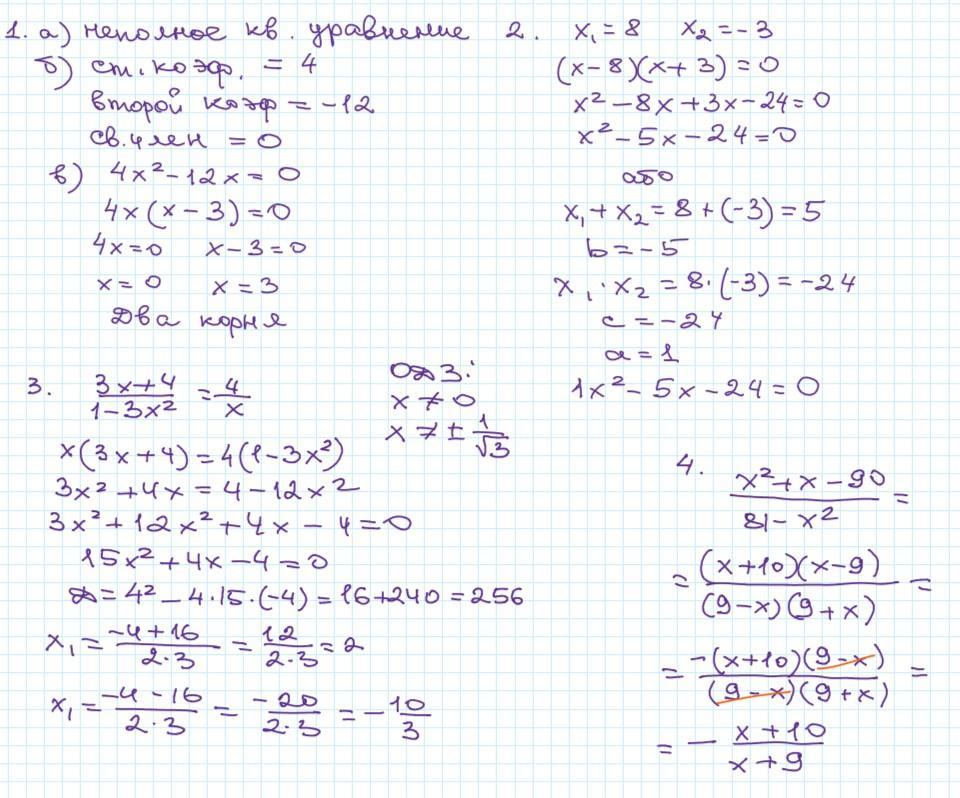 1. а) неполное кв. уравнение
б) ст. коэф. = 4
второй коэф = -12
св. член = 0
в) 4x² - 12x = 0
4x(x - 3) = 0
4x = 0 x - 3 = 0
x = 0 x = 3
Два корня
2. x₁ = 8 x₂ = -3
(x - 8)(x + 3) = 0
x² - 8x + 3x - 24 = 0
x² - 5x - 24 = 0
або
x₁ + x₂ = 8 + (-3) = 5
b = -5
x₁ · x₂ = 8 · (-3) = -24
c = -24
a = 1
1x² - 5x - 24 = 0
3. (3x+4)/(1-3x²) = 4/x
ОДЗ:
x ≠ 0
x ≠ ± 1/√3
x(3x+4) = 4(1-3x²)
3x² + 4x = 4 - 12x²
3x² + 12x² + 4x - 4 = 0
15x² + 4x - 4 = 0
D = 4² - 4·15·(-4) = 16 + 240 = 256
x₁ = (-4+16)/(2·3) = 12/(2·3) = 2
x₁ = (-4-16)/(2·3) = -20/(2·3) = -10/3
4. (x² + x - 90)/(81 - x²) =
= (x+10)(x-9)/(9-x)(9+x) =
= -(x+10)(9-x)/(9-x)(9+x) =
= - (x+10)/(x+9)